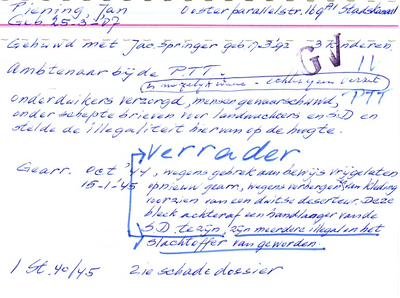 Piening Jan Oosterparallelstr. 169 A1 Stadskanaal
Geb. 25-3-07
Gehuwd met Jac. Springer geb. 3 kinderen
GV
Ambtenaar bij de P.T.T.
onderduikers verzorgd, mensen gewaarschuwd, PTT
onderschepte brieven voor landwachters en S.D en
stelde de illegaliteit hiervan op de hoogte.
verrader
Gearr. oct '44, wegens gebrek aan bewijs vrijgelaten
15-1-'45 opnieuw gearr, wegens verbergen van kleding
voorzien van een duitse deserteur. Deze
bleek achteraf een handlanger van de
S.D. te zijn, zijn meerdere illegalen het
slachtoffer van geworden.
1 St. 40/45 Zie schade dossier